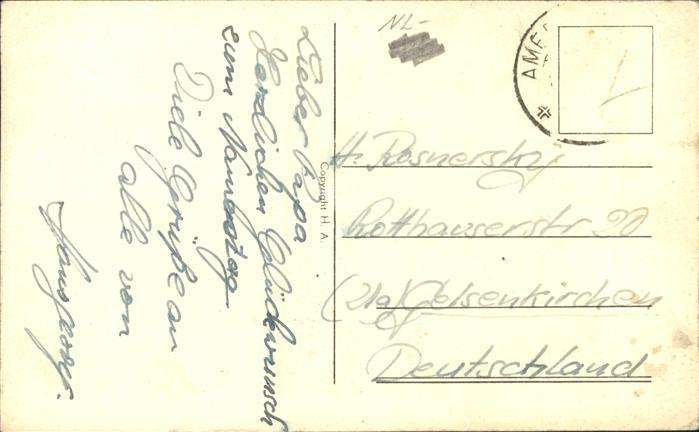 Lieber Papa
Herzlichen Glückwunsch
zum Namenstag
Viele Grüße an
alle von
NL-
AME
Copyright H. A.
H. Rosnersky
Rotthauserstr 90
(21a) Gelsenkirchen
Deutschland